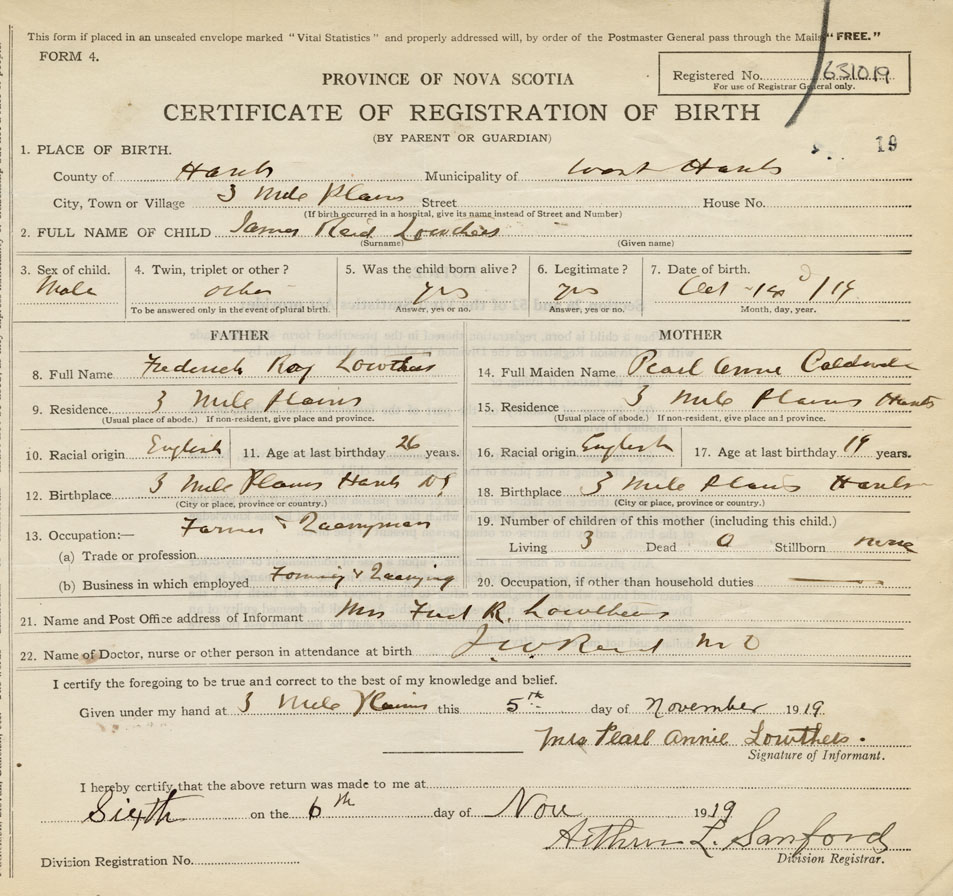 This form if placed in an unsealed envelope marked "Vital Statistics" and properly addressed will, by order of the Postmaster General pass through the Mails "FREE."
FORM 4.
Registered No. 631019
For use of Registrar General only.
PROVINCE OF NOVA SCOTIA
CERTIFICATE OF REGISTRATION OF BIRTH
(BY PARENT OR GUARDIAN)
19
1. PLACE OF BIRTH.
County of Hants Municipality of West Hants
City, Town or Village 3 Mile Plains Street House No.
(If birth occurred in a hospital, give its name instead of Street and Number)
2. FULL NAME OF CHILD James Reid Lowthers
(Surname) (Given name)
3. Sex of child. 4. Twin, triplet or other? 5. Was the child born alive? 6. Legitimate? 7. Date of birth.
Male other yes yes Oct 14 /19
To be answered only in the event of plural birth. Answer, yes or no. Answer, yes or no. Month, day, year.
FATHER MOTHER
8. Full Name Frederick Roy Lowthers 14. Full Maiden Name Pearl Annie Caldwell
9. Residence. 3 Mile Plains 15. Residence 3 Mile Plains Hants
(Usual place of abode.) If non-resident, give place and province. (Usual place of abode.) If non-resident, give place and province.
10. Racial origin English 11. Age at last birthday 26 years. 16. Racial origin English 17. Age at last birthday 19 years.
12. Birthplace 3 Mile Plains Hants NS 18. Birthplace 3 Mile Plains Hants
(City or place, province or country.) (City or place, province or country.)
13. Occupation:— Farmer & Quarryman 19. Number of children of this mother (including this child.)
(a) Trade or profession Living 3 Dead 0 Stillborn none
(b) Business in which employed Farming & Quarrying 20. Occupation, if other than household duties
21. Name and Post Office address of Informant Mrs Fred R. Lowthers
22. Name of Doctor, nurse or other person in attendance at birth J. W. Reid M D
I certify the foregoing to be true and correct to the best of my knowledge and belief.
Given under my hand at 3 Mile Plains this 5th day of November 1919
Mrs Pearl Annie Lowthers.
Signature of Informant.
I hereby certify that the above return was made to me at
Sixth on the 6th day of Nov 1919
Arthur L. Sanford
Division Registrar.
Division Registration No.